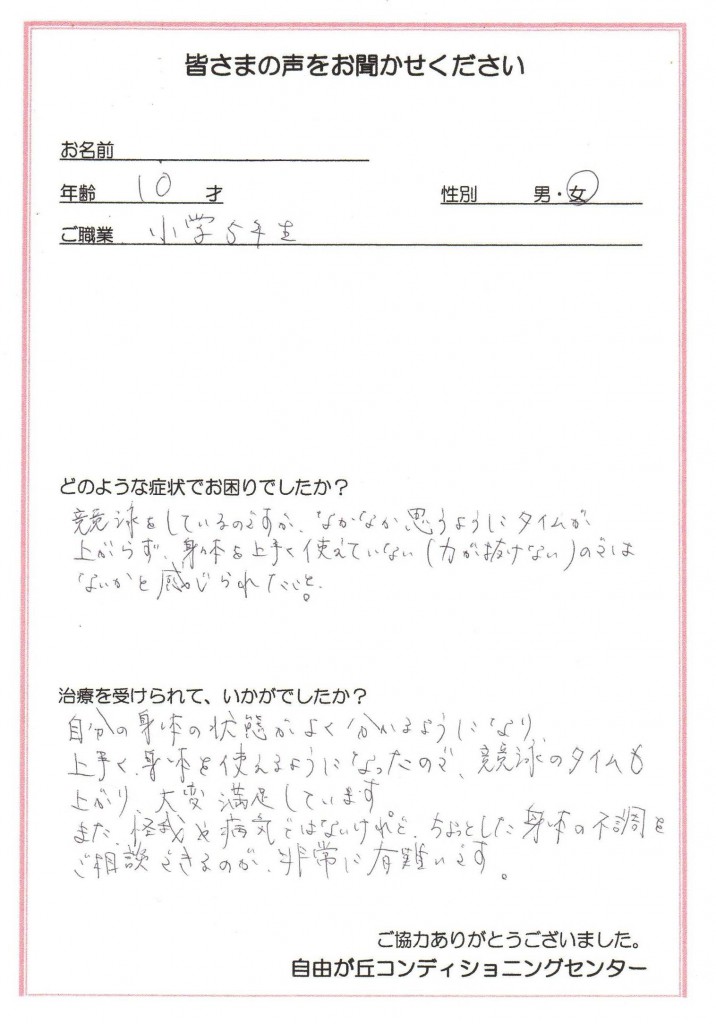 皆さまの声をお聞かせください
お名前
年齢 10 才 性別 男・女
ご職業 小学5年生
どのような症状でお困りでしたか？
競泳をしているのですが、なかなか思うようにタイムが
上がらず、身体を上手く使えていない(力が抜けない)のでは
ないかと感じられたこと。
治療を受けられて、いかがでしたか？
自分の身体の状態がよく分かるようになり、
上手く、身体を使えるようになったので、競泳のタイムも
上がり、大変満足しています
また、怪我や病気ではないけれど、ちょっとした身体の不調を
ご相談できるのが、非常に有難いです。
ご協力ありがとうございました。
自由が丘コンディショニングセンター